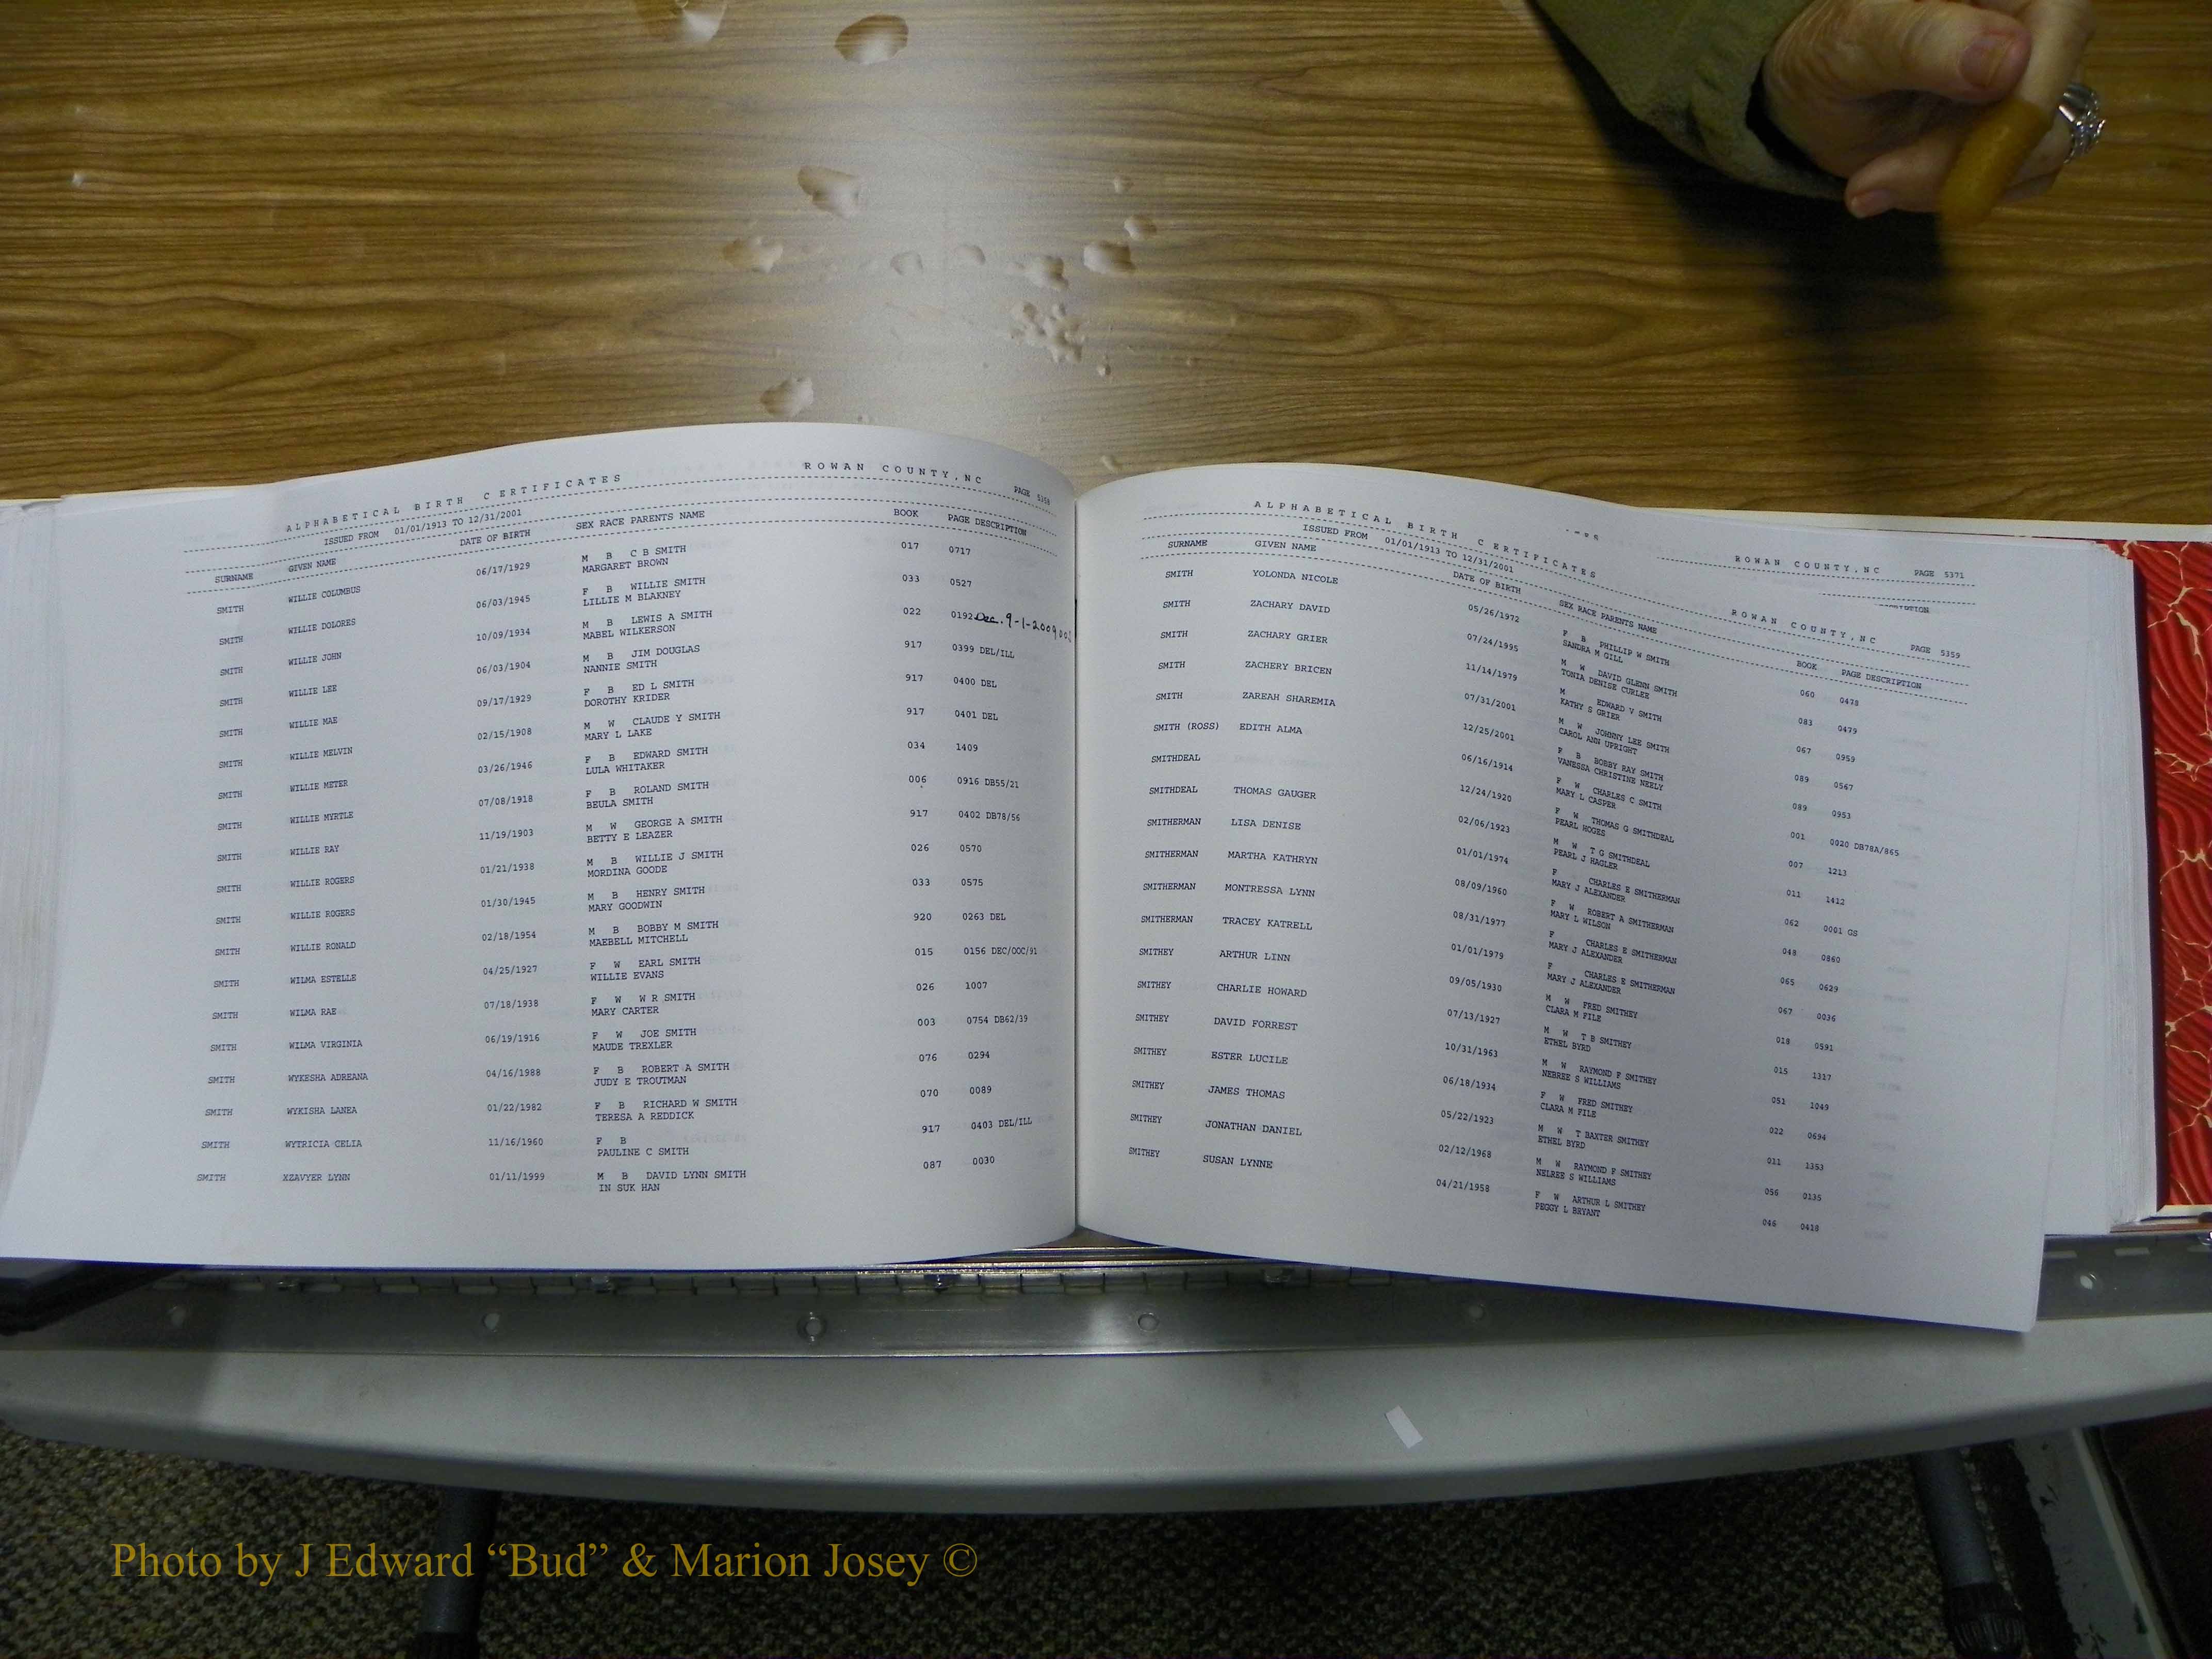 ALPHABETICAL BIRTH CERTIFICATES ROWAN COUNTY,NC PAGE 5358
ISSUED FROM 01/01/1913 TO 12/31/2001
SURNAME GIVEN NAME DATE OF BIRTH SEX RACE PARENTS NAME BOOK PAGE DESCRIPTION
SMITH WILLIE COLUMBUS 06/17/1929 M B C B SMITH 017 0717
MARGARET BROWN
SMITH WILLIE DOLORES 06/03/1945 F B WILLIE SMITH 033 0527
LILLIE M BLAKNEY
SMITH WILLIE JOHN 10/09/1934 M B LEWIS A SMITH 022 0192 Dec. 9-1-2009
MABEL WILKERSON
SMITH WILLIE LEE 06/03/1904 M B JIM DOUGLAS 917 0399 DEL/ILL
NANNIE SMITH
SMITH WILLIE MAE 09/17/1929 F B ED L SMITH 917 0400 DEL
DOROTHY KRIDER
SMITH WILLIE MELVIN 02/15/1908 M W CLAUDE Y SMITH 917 0401 DEL
MARY L LAKE
SMITH WILLIE METER 03/26/1946 F B EDWARD SMITH 034 1409
LULA WHITAKER
SMITH WILLIE MYRTLE 07/08/1918 F B ROLAND SMITH 006 0916 DB55/21
BEULA SMITH
SMITH WILLIE RAY 11/19/1903 M W GEORGE A SMITH 917 0402 DB78/56
BETTY E LEAZER
SMITH WILLIE ROGERS 01/21/1938 M B WILLIE J SMITH 026 0570
MORDINA GOODE
SMITH WILLIE ROGERS 01/30/1945 M B HENRY SMITH 033 0575
MARY GOODWIN
SMITH WILLIE RONALD 02/18/1954 M B BOBBY M SMITH 920 0263 DEL
MAEBELL MITCHELL
SMITH WILMA ESTELLE 04/25/1927 F W EARL SMITH 015 0156 DEC/OOC/91
WILLIE EVANS
SMITH WILMA RAE 07/18/1938 F W W R SMITH 026 1007
MARY CARTER
SMITH WILMA VIRGINIA 06/19/1916 F W JOE SMITH 003 0754 DB62/39
MAUDE TREXLER
SMITH WYKESHA ADREANA 04/16/1988 F B ROBERT A SMITH 076 0294
JUDY E TROUTMAN
SMITH WYKISHA LANEA 01/22/1982 F B RICHARD W SMITH 070 0089
TERESA A REDDICK
SMITH WYTRICIA CELIA 11/16/1960 F B 917 0403 DEL/ILL
PAULINE C SMITH
SMITH XZAVYER LYNN 01/11/1999 M B DAVID LYNN SMITH 087 0030
IN SUK HAN
ROWAN COUNTY,NC PAGE 5371
ALPHABETICAL BIRTH CERTIFICATES ROWAN COUNTY,NC PAGE 5359
ISSUED FROM 01/01/1913 TO 12/31/2001
SURNAME GIVEN NAME DATE OF BIRTH SEX RACE PARENTS NAME BOOK PAGE DESCRIPTION
SMITH YOLONDA NICOLE 05/26/1972 F B PHILLIP W SMITH 060 0478
SANDRA M GILL
SMITH ZACHARY DAVID 07/24/1995 M W DAVID GLENN SMITH 083 0479
TONIA DENISE CURLEE
SMITH ZACHARY GRIER 11/14/1979 M EDWARD V SMITH 067 0959
KATHY S GRIER
SMITH ZACHERY BRICEN 07/31/2001 M W JOHNNY LEE SMITH 089 0567
CAROL ANN UPRIGHT
SMITH ZAREAH SHAREMIA 12/25/2001 F B BOBBY RAY SMITH 089 0953
VANESSA CHRISTINE NEELY
SMITH (ROSS) EDITH ALMA 06/16/1914 F W CHARLES C SMITH 001 0020 DB78A/865
MARY L CASPER
SMITHDEAL 12/24/1920 F W THOMAS G SMITHDEAL 007 1213
PEARL HOGES
SMITHDEAL THOMAS GAUGER 02/06/1923 M W T G SMITHDEAL 011 1412
PEARL J HAGLER
SMITHERMAN LISA DENISE 01/01/1974 F CHARLES E SMITHERMAN 062 0001 GS
MARY J ALEXANDER
SMITHERMAN MARTHA KATHRYN 08/09/1960 F W ROBERT A SMITHERMAN 048 0860
MARY L WILSON
SMITHERMAN MONTRESSA LYNN 08/31/1977 F CHARLES E SMITHERMAN 065 0629
MARY J ALEXANDER
SMITHERMAN TRACEY KATRELL 01/01/1979 F CHARLES E SMITHERMAN 067 0036
MARY J ALEXANDER
SMITHEY ARTHUR LINN 09/05/1930 M W FRED SMITHEY 018 0591
CLARA M FILE
SMITHEY CHARLIE HOWARD 07/13/1927 M W T B SMITHEY 015 1317
ETHEL BYRD
SMITHEY DAVID FORREST 10/31/1963 M W RAYMOND F SMITHEY 051 1049
NEBREE S WILLIAMS
SMITHEY ESTER LUCILE 06/18/1934 F W FRED SMITHEY 022 0694
CLARA M FILE
SMITHEY JAMES THOMAS 05/22/1923 M W T BAXTER SMITHEY 011 1353
ETHEL BYRD
SMITHEY JONATHAN DANIEL 02/12/1968 M W RAYMOND F SMITHEY 056 0135
NELREE S WILLIAMS
SMITHEY SUSAN LYNNE 04/21/1958 F W ARTHUR L SMITHEY 046 0418
PEGGY L BRYANT
Photo by J Edward “Bud” & Marion Josey ©